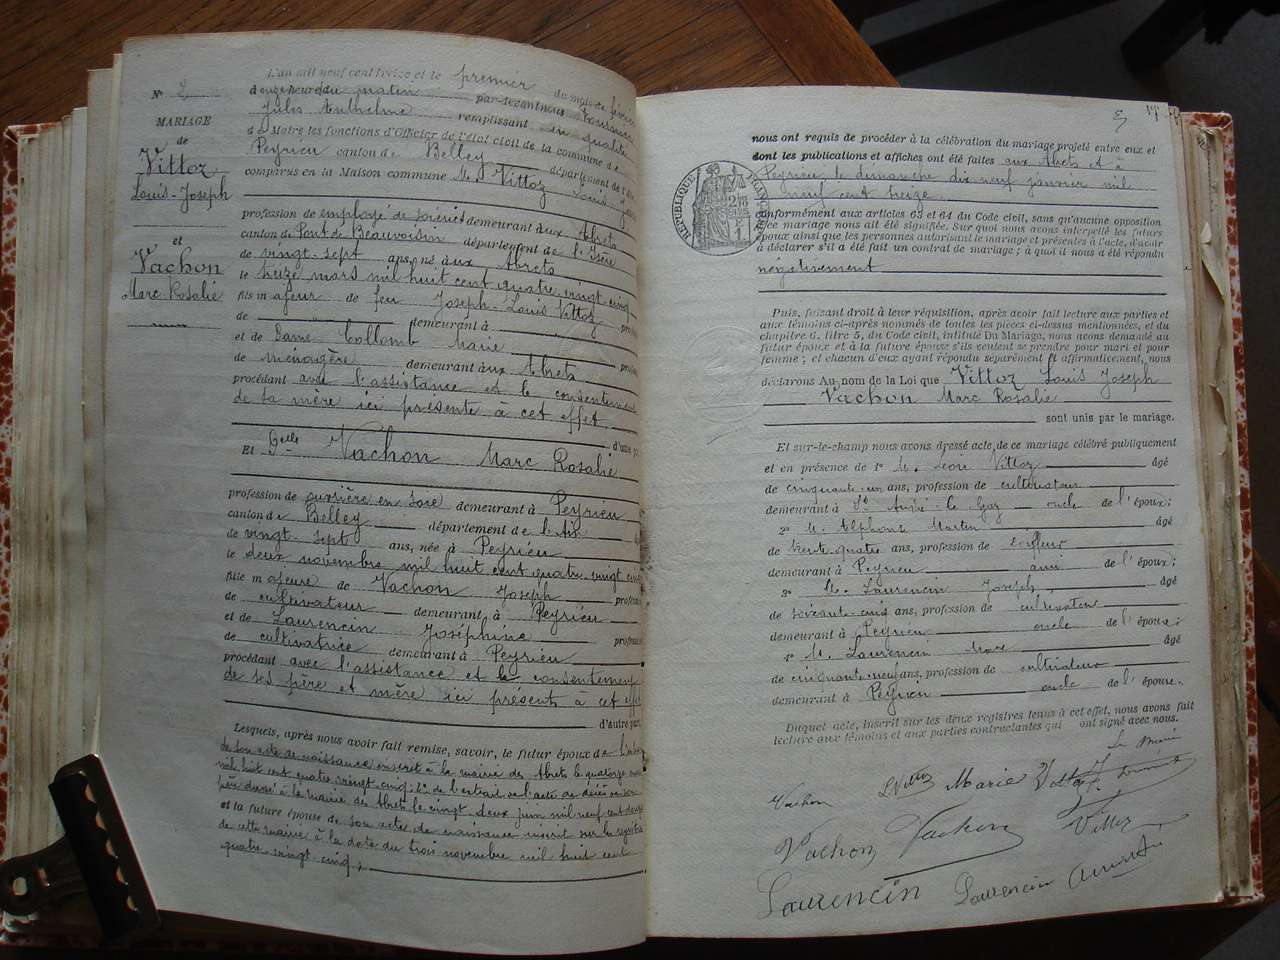 L'an mil neuf cent treize et le premier du mois de février
à onze heures du matin par-devant nous
Jules Anthelme remplissant en qualité
de Maire les fonctions d'Officier de l'état civil de la commune de
Peyrieu canton de Belley département de l'Ain
comparus en la Maison commune M. Vittoz Louis-
N° 2
MARIAGE
de
Vittoz
Louis-Joseph
et
Vachon
Marc Rosalie
profession de employé de soieries demeurant aux Abrets
canton de Pont de Beauvoisin département de l'Isère
de vingt-sept ans, né aux Abrets
le treize mars mil huit cent quatre vingt-cinq
fils majeur de feu Joseph-Louis Vittoz
de demeurant à
et de Dame Collomb Marie
de ménagère demeurant aux Abrets
procédant avec l'assistance et le consentement
de sa mère ici présente à cet effet
d'une p
Et Delle Vachon Marc Rosalie
profession de ouvrière en soie demeurant à Peyrieu
canton de Belley département de l'Ain
de vingt-sept ans, née à Peyrieu
le deux novembre mil huit cent quatre-vingt cinq
fille majeure de Vachon Joseph
de cultivateur demeurant à Peyrieu
et de Laurencin Joséphine
de cultivatrice demeurant à Peyrieu
procédant avec l'assistance et le consentement
de ses père et mère ici présents à cet effet
d'autre part
Lesquels, après nous avoir fait remise, savoir, le futur époux de l'extrait
de son acte de naissance inscrit à la mairie des Abrets le quatorze mars
mil huit cent quatre vingt cinq; 2° de l'extrait de l'acte de décès de son
père dressé à la mairie des Abrets le vingt-deux juin mil neuf cent douze
et la future épouse de son acte de naissance inscrit sur les registres
de cette mairie à la date du trois novembre mil huit cent
quatre vingt-cinq;
nous ont requis de procéder à la célébration du mariage projeté entre eux et
dont les publications et affiches ont été faites aux Abrets et à
Peyrieu le dimanche dix neuf janvier mil
neuf cent treize
RÉPUBLIQUE FRANÇAISE
conformément aux articles 63 et 64 du Code civil, sans qu'aucune opposition
à ce mariage nous ait été signifiée. Sur quoi nous avons interpellé les futurs
époux ainsi que les personnes autorisant le mariage et présentes à l'acte, d'avoir
à déclarer s'il a été fait un contrat de mariage ; à quoi il nous a été répondu
négativement
Puis, faisant droit à leur réquisition, après avoir fait lecture aux parties et
aux témoins ci-après nommés de toutes les pièces ci-dessus mentionnées, et du
chapitre 6, titre 5, du Code civil, intitulé Du Mariage, nous avons demandé au
futur époux et à la future épouse s'ils veulent se prendre pour mari et pour
femme ; et chacun d'eux ayant répondu séparément et affirmativement, nous
déclarons Au nom de la Loi que Vittoz Louis Joseph
Vachon Marc Rosalie
sont unis par le mariage.
Et sur-le-champ nous avons dressé acte de ce mariage célébré publiquement
et en présence de 1° M. Léon Vittoz âgé
de cinquante-un ans, profession de cultivateur
demeurant à St André-le-Gaz oncle de l'époux;
2° M. Alphonse Martin âgé
de trente-quatre ans, profession de coiffeur
demeurant à Peyrieu ami de l'époux;
3° M. Laurencin Joseph, âgé
de soixante-cinq ans, profession de cultivateur
demeurant à Peyrieu oncle de l'épouse;
4° M. Laurencin Marc âgé
de cinquante-neuf ans, profession de cultivateur
demeurant à Peyrieu oncle de l'épouse.
Duquel acte, inscrit sur les deux registres tenus à cet effet, nous avons fait
lecture aux témoins et aux parties contractantes qui ont signé avec nous.
Le Maire
Vachon LVittoz Marie Vittoz
Vachon Vachon Vittoz
Laurencin Laurencin